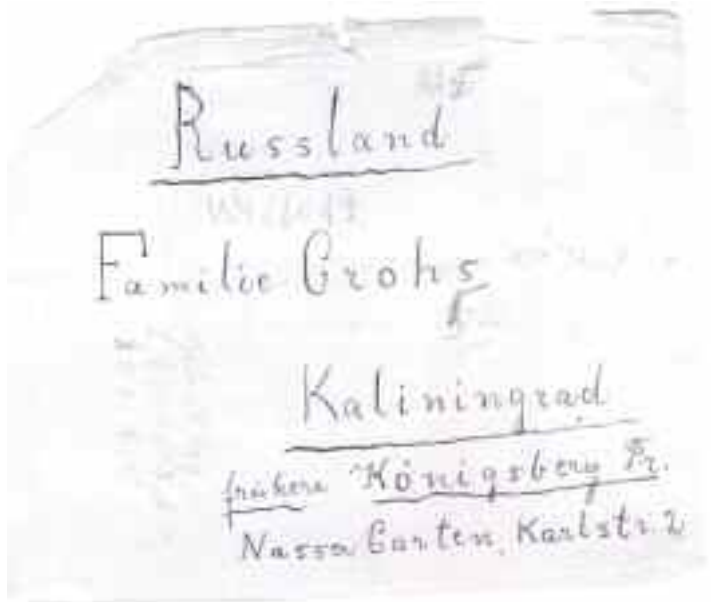 Russland
Familie Grohs
Kaliningrad
frühere Königsberg Pr.
Nasse Garten, Karlstr. 2